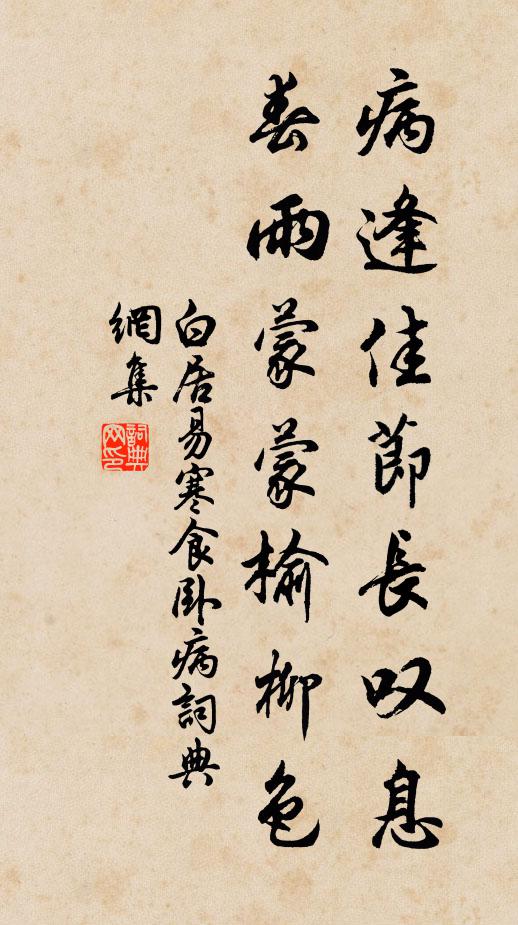 病逢佳節長叹息
春雨蒙蒙榆柳色
白居易寒食卧病詞典
網集
詞典網印